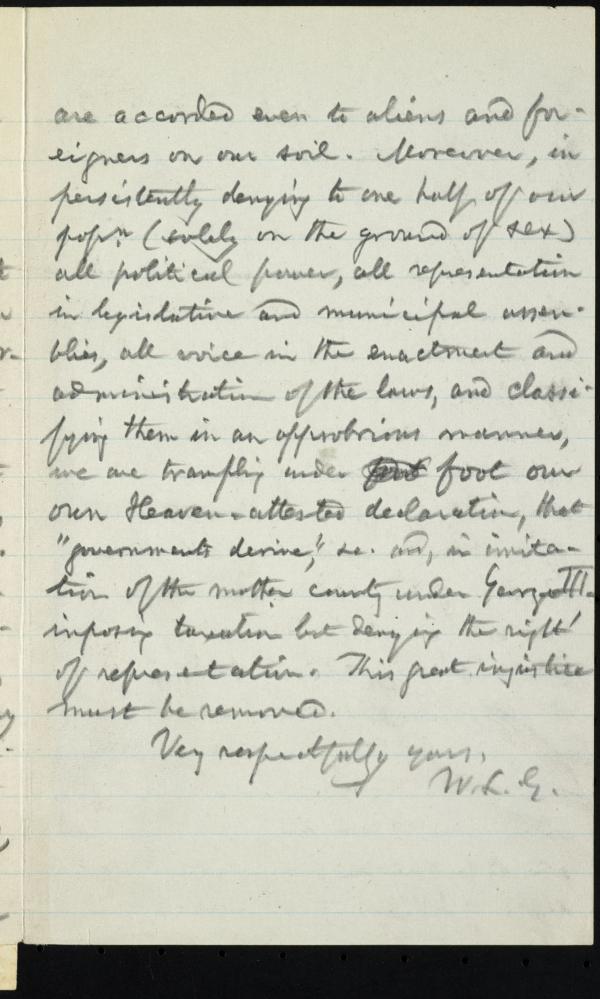 are accorded even to aliens and for-
eigners on our soil. Moreover, in
persistently denying to one half of our
popn. (solely on the ground of sex)
all political power, all representation
in legislative and municipal assem-
blies, all voice in the enactment and
administration of the laws, and classi-
fying them in an opprobrious manner,
we are trampling under foot our
own Heaven-attested declaration, that
"governments derive," &c. and, in imita-
tion of the mother country under George III.
imposing taxation but denying the right
of representation. This great injustice
must be removed.
Very respectfully yours,
W. L. G.